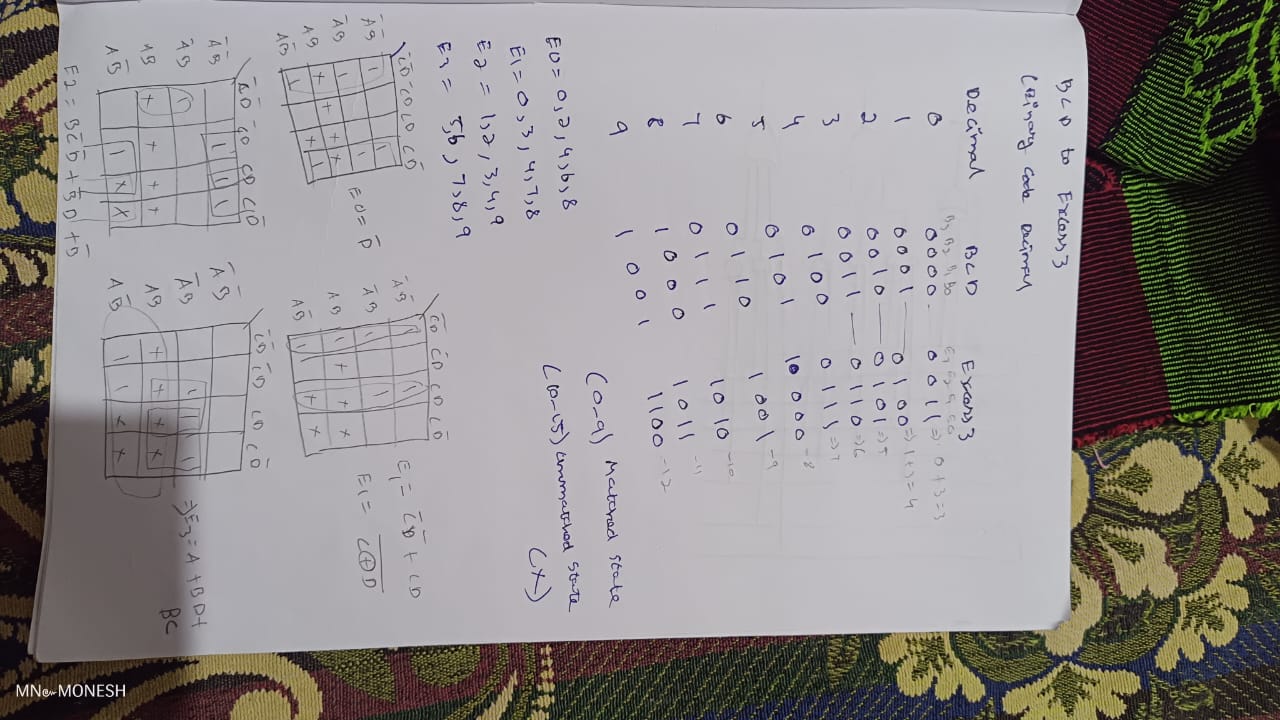 BCD to Excess 3
(Binary Code Decimal
Decimal BCD Excess 3
B3 B2 B1 B0 E3 E2 E1 E0
0 0000 0011 ⇒ 0+3=3
1 0001 — 0100 ⇒ 1+3=4
2 0010 — 0101 ⇒5
3 0011 — 0110 ⇒6
4 0100 0111 ⇒7
5 0101 10000 -8
6 0110 1001 -9
7 0111 1010 -10
8 1000 1011 -11
9 1001 1100 -12
(0-9) Matched state
(10-15) unmatched state
(X)
E0 = 0,2,4,6,8
E1 = 0,3,4,7,8
E2 = 1,2,3,4,9
E3 = 5,6,7,8,9
C̅D̅ C̅D CD CD̅
A̅B̅ 1 1
A̅B 1 1
AB x x x x
AB̅ 1 x 1
E0 = D̅
C̅D̅ C̅D CD CD̅
A̅B̅ 1 1
A̅B 1 1
AB 1 x x x
AB̅ 1 x x
E1 = C̅D̅ + CD
E1 = C̅⊕̅D̅
C̅D̅ C̅D CD CD̅
A̅B̅ 1 1 1
A̅B 1
AB x x x x
AB̅ 1 x x
E2 = BC̅D̅ + B̅D + D̅
C̅D̅ C̅D CD CD̅
A̅B̅
A̅B 1 1 1
AB x x x x
AB̅ 1 1 x x
⇒E3 = A + BD +
BC
MN@-MONESH